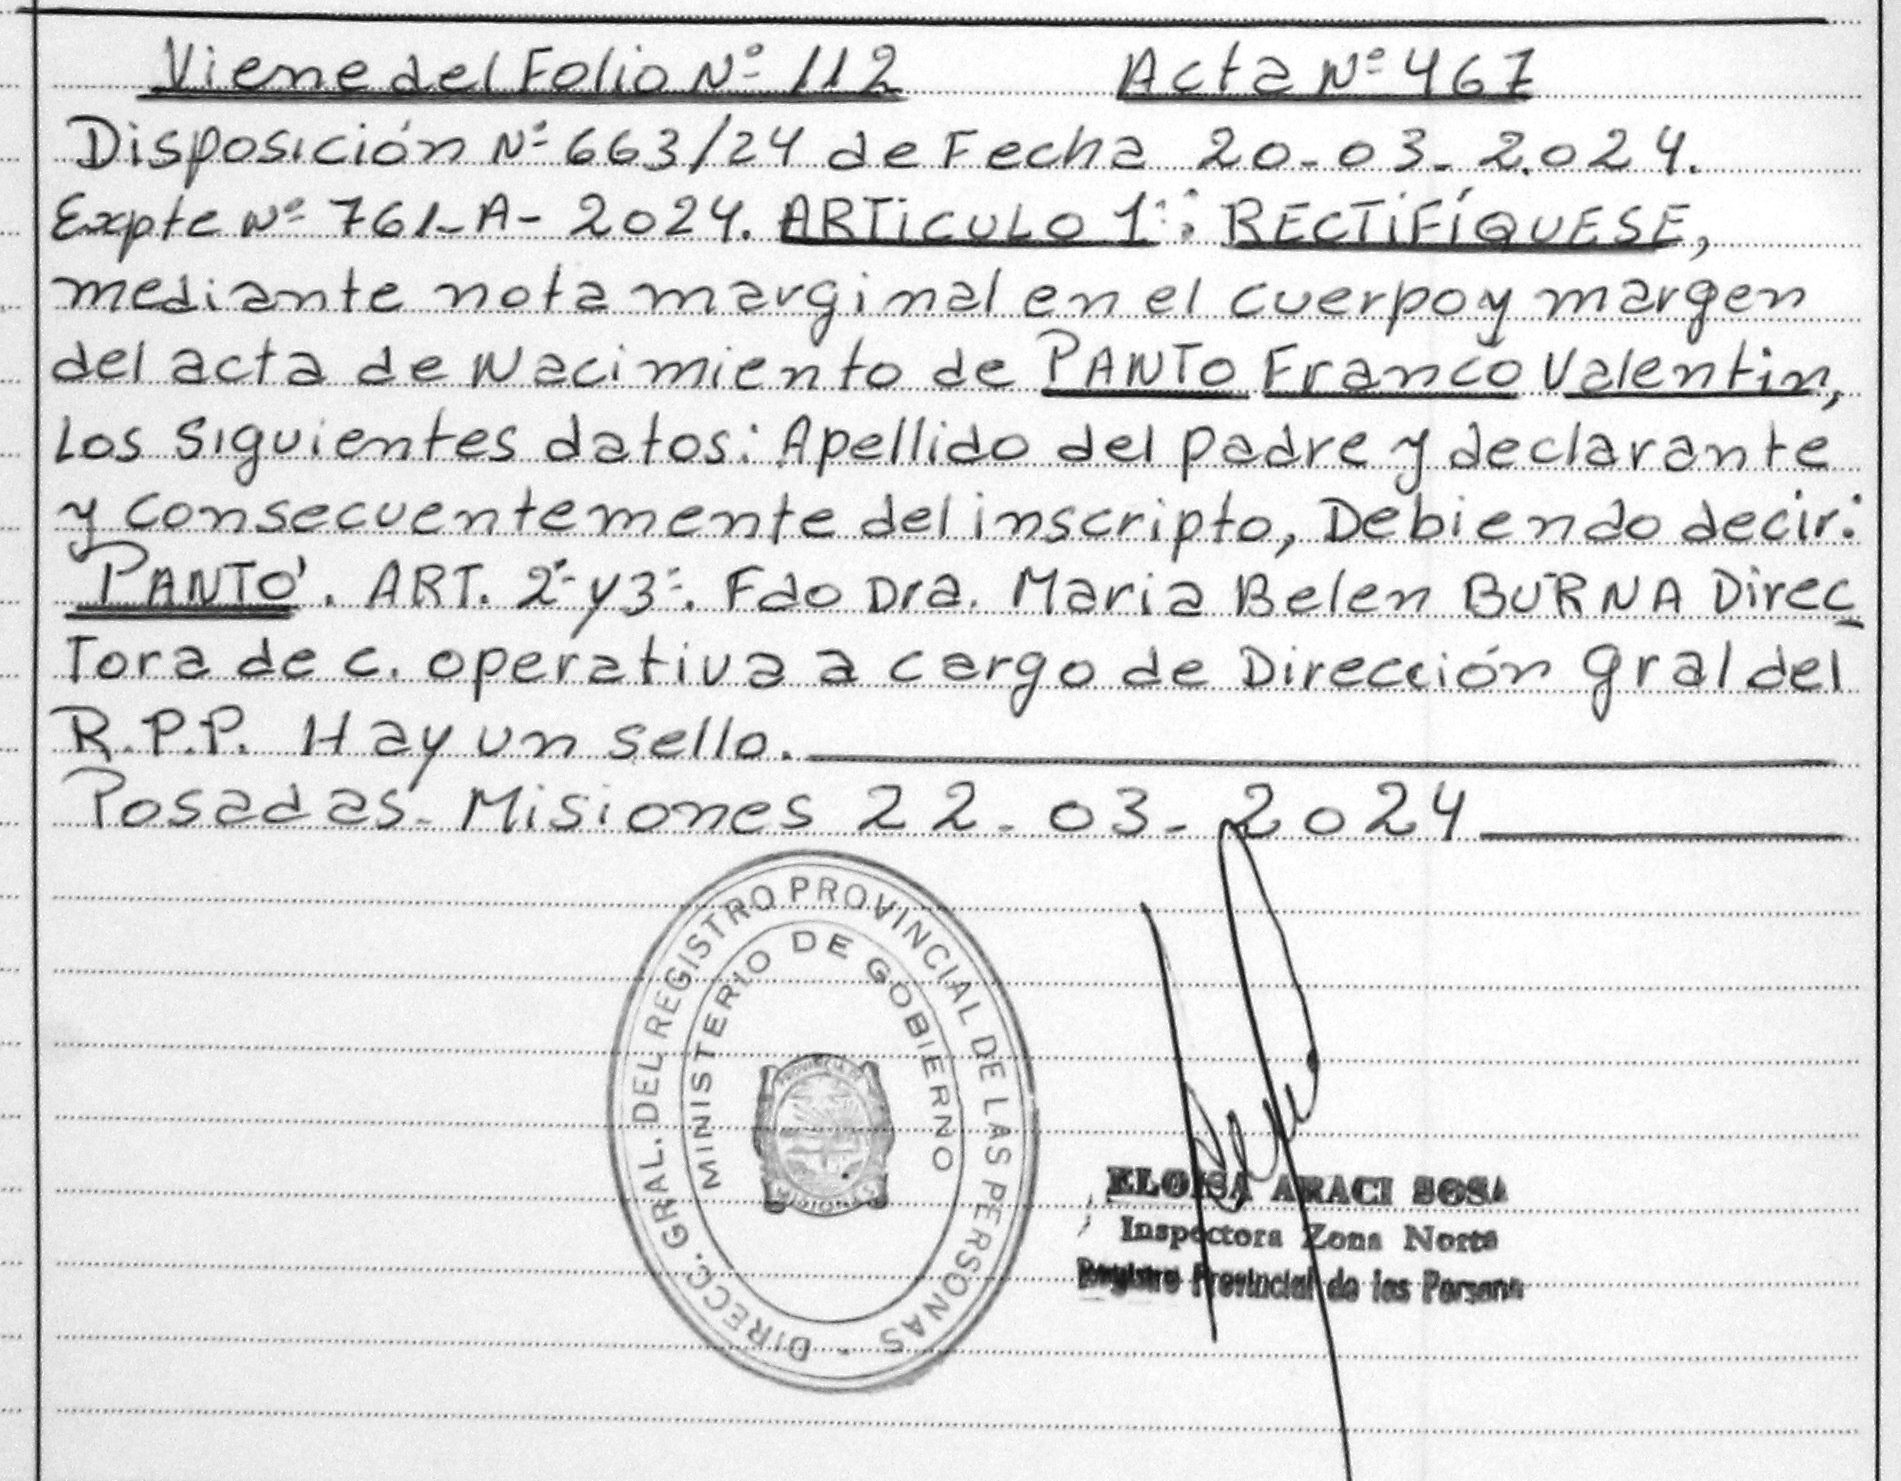 Viene del Folio Nº 112 Acta Nº 467
Disposición Nº 663/24 de Fecha 20-03-2.024.
Expte Nº 761-A-2024. ARTICULO 1º: RECTIFÍQUESE,
mediante nota marginal en el cuerpo y margen
del acta de Nacimiento de PANTO Franco Valentin,
Los siguientes datos: Apellido del padre y declarante
y consecuentemente del inscripto, Debiendo decir:
PANTÓ. ART. 2º y 3º. Fdo Dra. Maria Belen BURNA Direc
Tora de c. operativa a cargo de Dirección gral del
R.P.P. Hay un sello.
Posadas. Misiones 22-03-2024
DIRECC. GRAL. DEL REGISTRO PROVINCIAL DE LAS PERSONAS
MINISTERIO DE GOBIERNO
PROVINCIA DE
MISIONES
ELOISA ARACI SOSA
Inspectora Zona Norte
Registro Provincial de las Persona